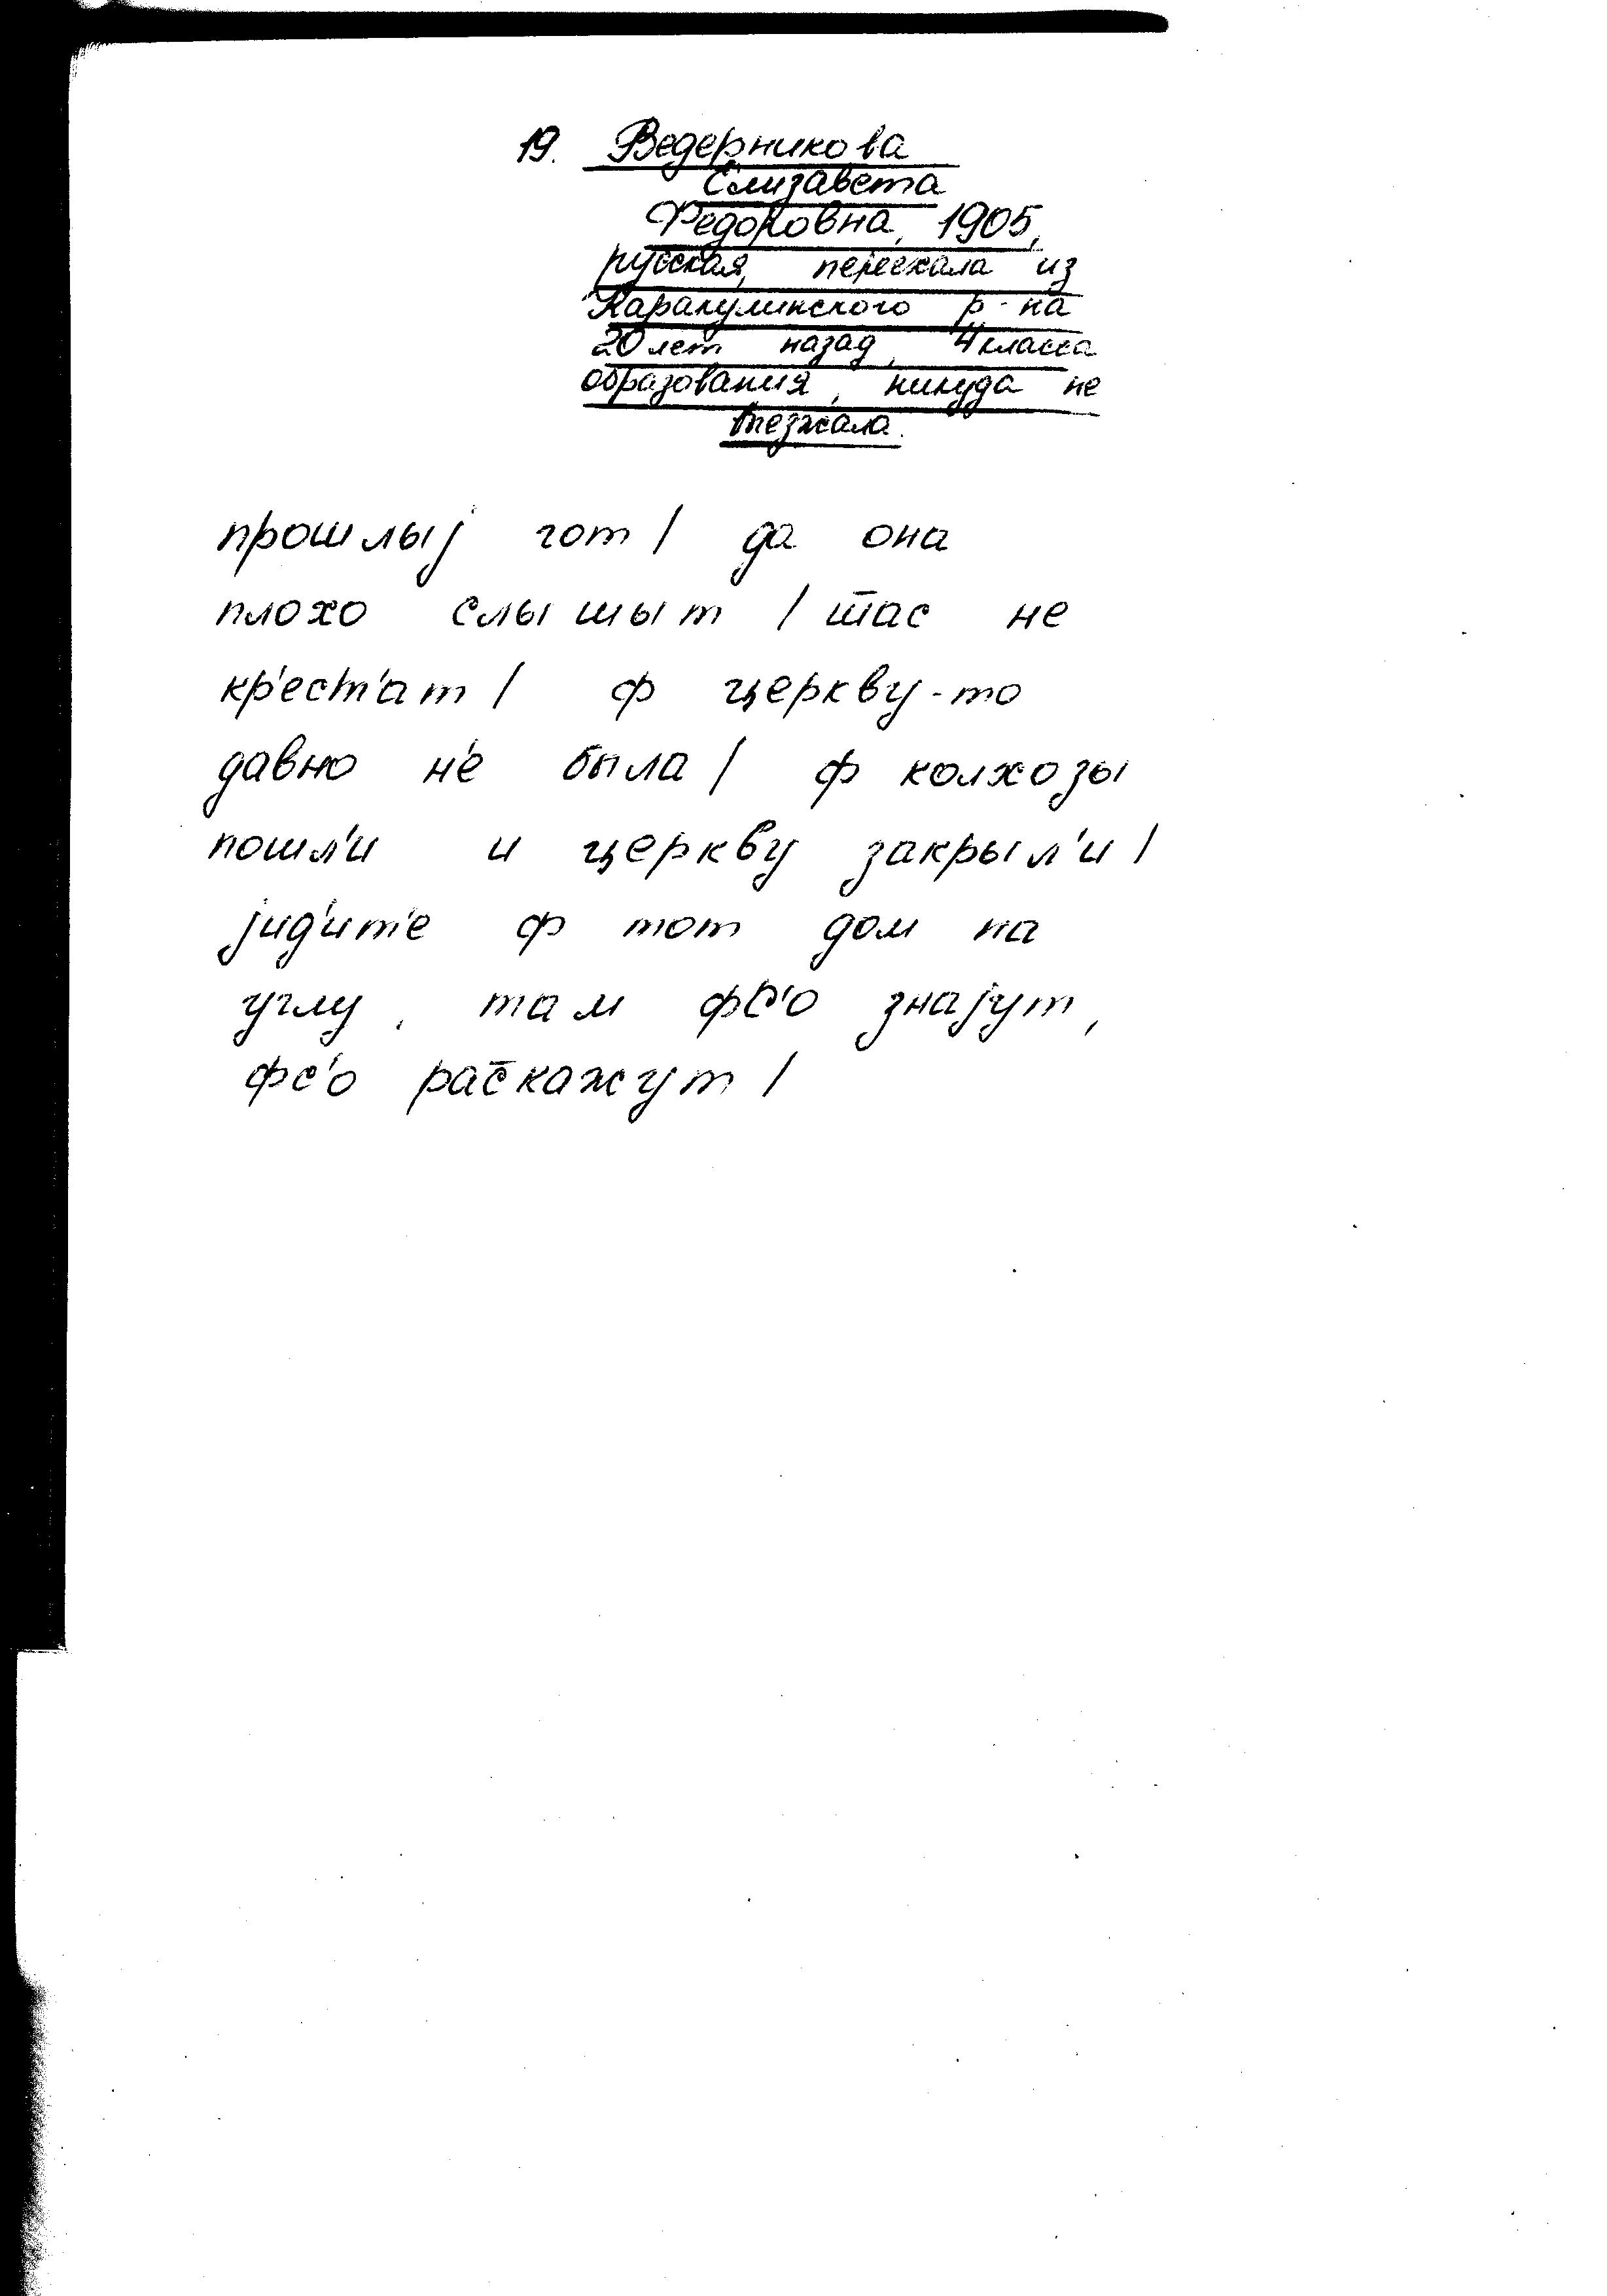 19. Ведерникова
Елизавета
Федоровна, 1905,
русская, переехала из
Каракулинского р-на
20 лет назад, 4 класса
образования, никуда не
выезжала.
прошлыj гот / да она
плохо слышыт / ш̄ас не
кр'ест'ат / ф церкву-то
давно н'е была / ф колхозы
пошл'и и церкву закрыл'и /
jид'ит'е ф тот дом на
углу, там фс'о знаjут,
фс'о рас̄кажут /